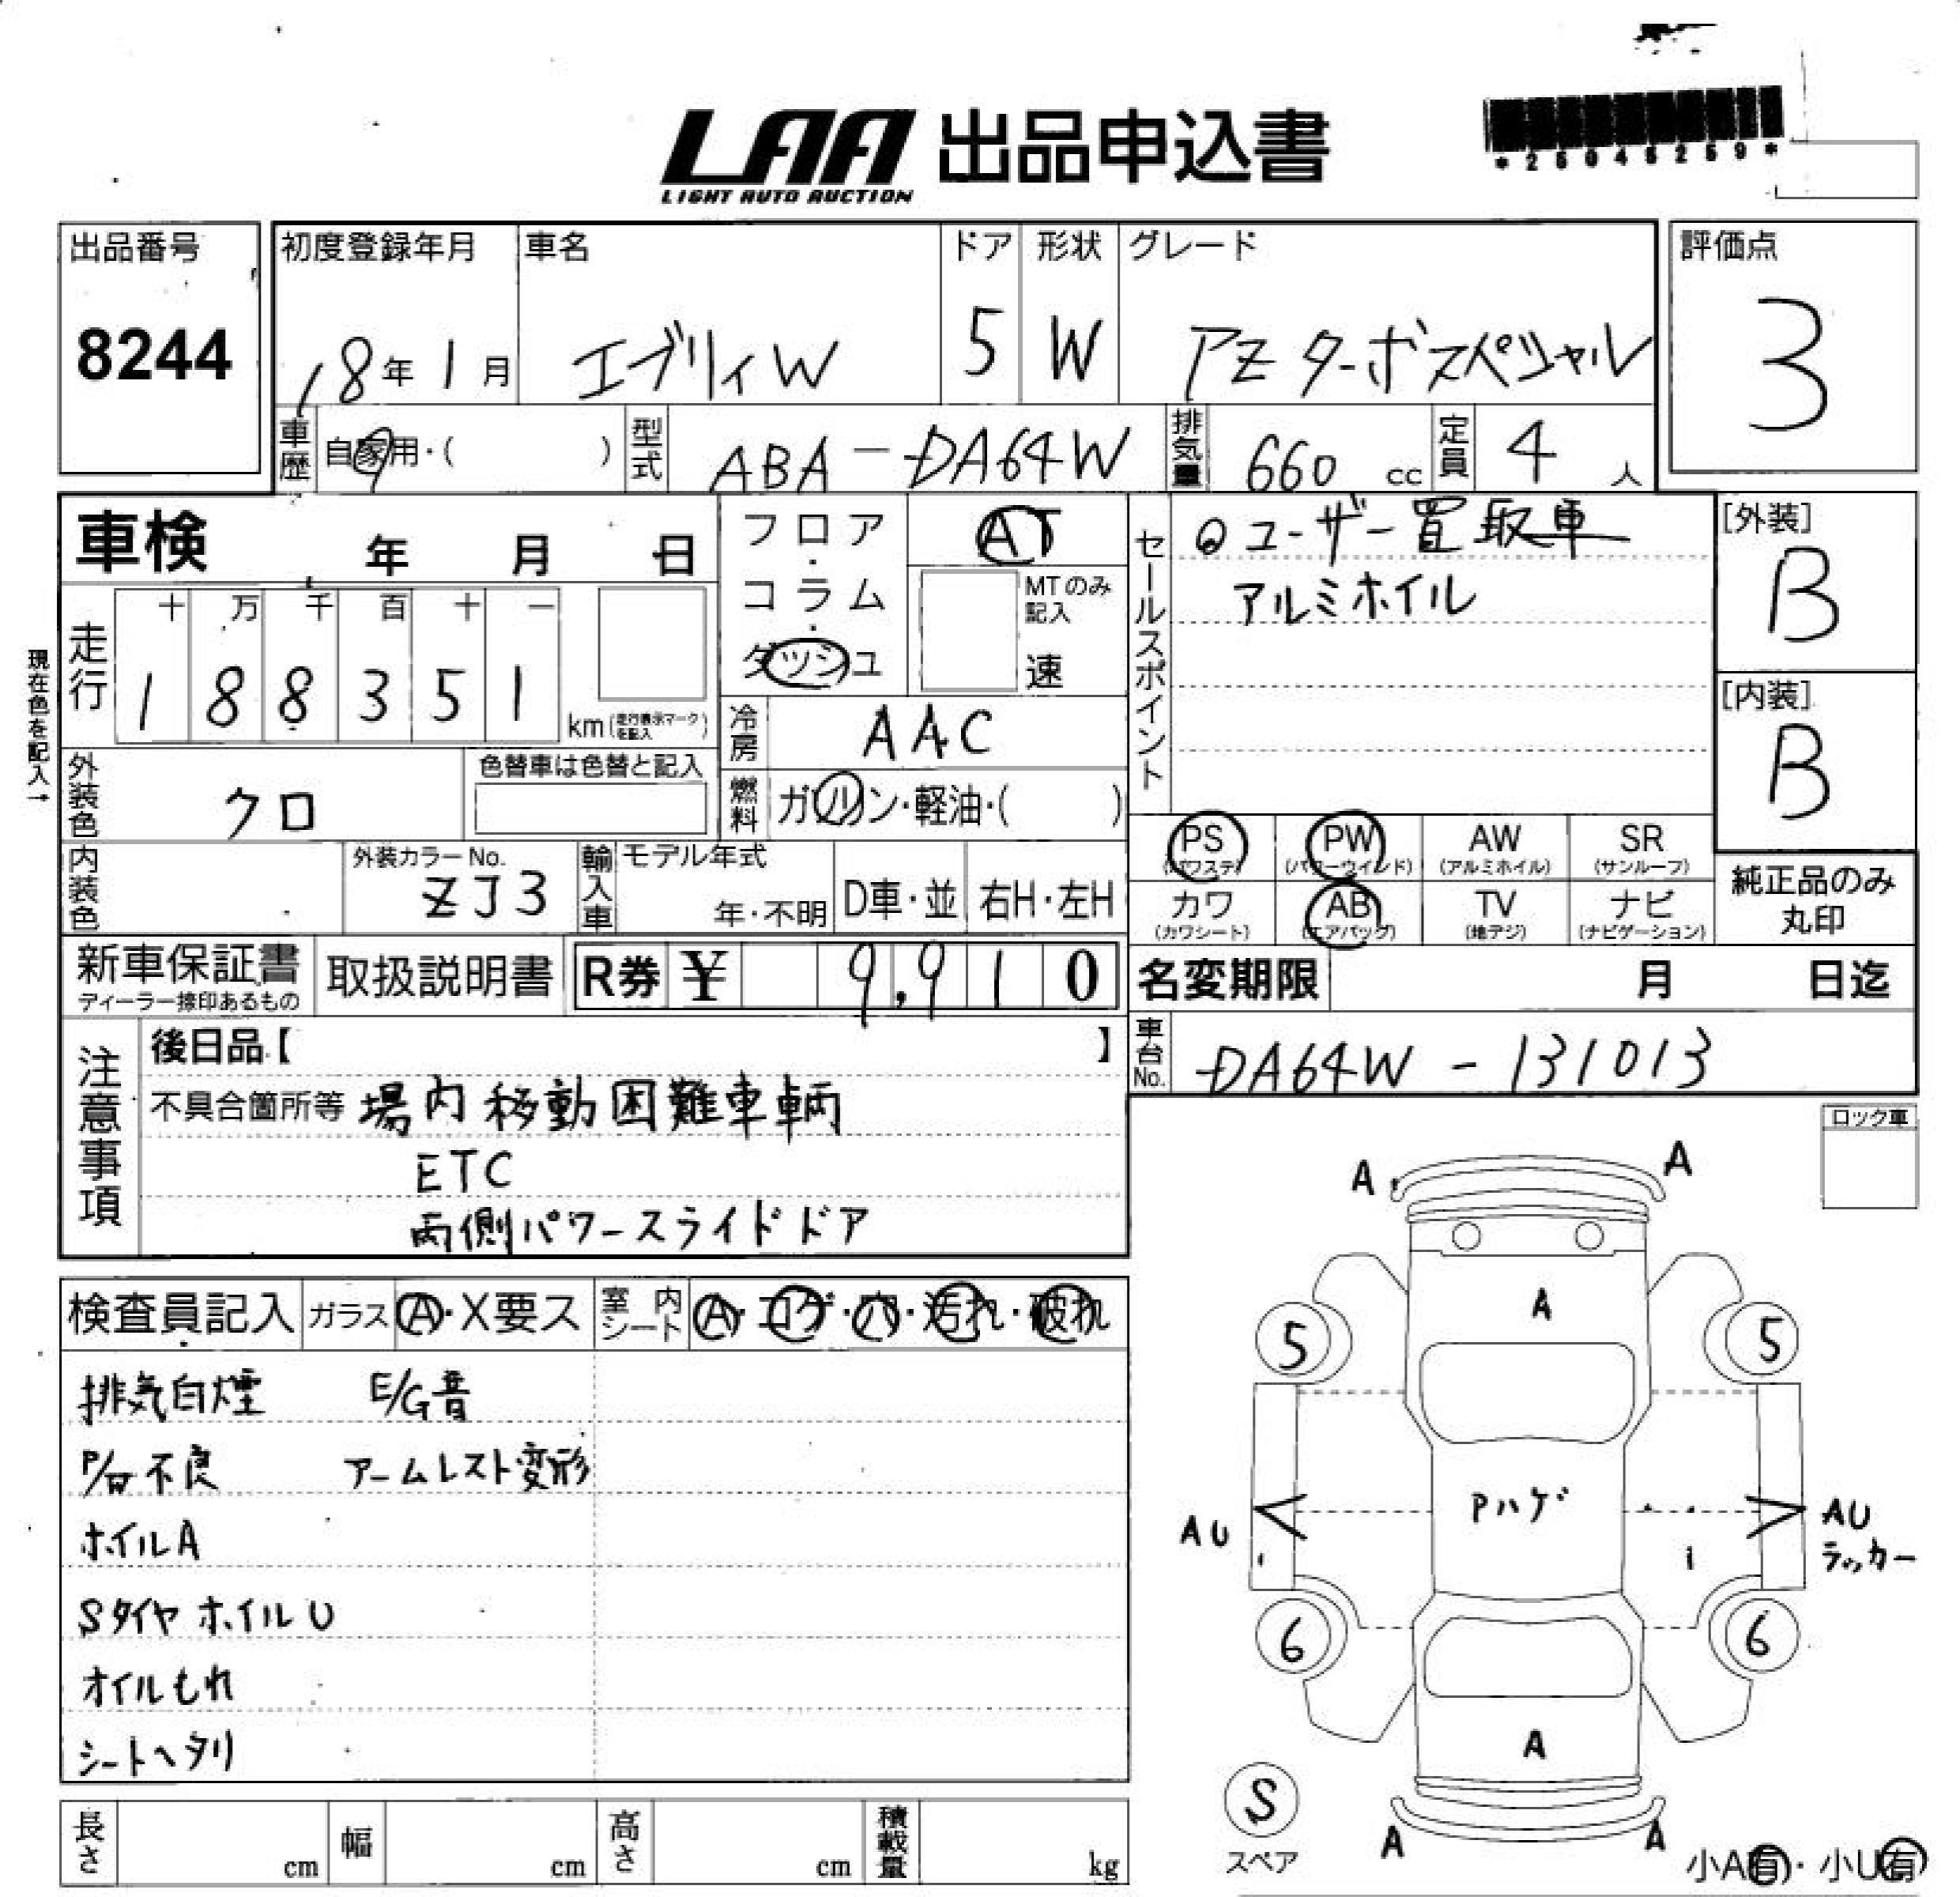 LAA 出品申込書
LIGHT AUTO AUCTION
*25045259*
出品番号
8244
初度登録年月
18年1月
車名
エブリイW
ドア
5
形状
W
グレード
PZターボスペシャル
評価点
3
車歴
自家用・( )
型式
ABA-DA64W
排気量
660 cc
定員
4 人
車検 年 月 日
フロア・コラム・ダッシュ
AT
MTのみ記入
速
セールスポイント
ユーザー買取車
アルミホイル
[外装]
B
[内装]
B
現在色を記入→
走行
十 万 千 百 十 一
1 8 8 3 5 1
km(走行表示マークを記入)
冷房
AAC
外装色
クロ
色替車は色替と記入
燃料
ガソリン・軽油・( )
PS PW AW SR
(パワステ) (パワーウィンド) (アルミホイル) (サンルーフ)
カワ AB TV ナビ
(カワシート) (エアバッグ) (地デジ) (ナビゲーション)
純正品のみ
丸印
内装色
外装カラーNo.
ZJ3
輸入車
モデル年式
年・不明
D車・並
右H・左H
新車保証書
ディーラー捺印あるもの
取扱説明書
R券 ¥ 9,910
名変期限 月 日迄
車台No.
DA64W-131013
注意事項
後日品【 】
不具合箇所等 場内移動困難車輌
ETC
両側パワースライドドア
ロック車
検査員記入
ガラス A・X要ス
室内シート A・コゲ・穴・汚れ・破れ
排気白煙 E/G音
不良 アームレスト変形
ホイルA
Sタイヤ ホイルU
オイルもれ
シートヘタリ
A A
A
5 5
Pハゲ
AU
AU
ラッカー
6 6
A
S
スペア
A A
小A有・小U有
長さ cm
幅 cm
高さ cm
積載量 kg